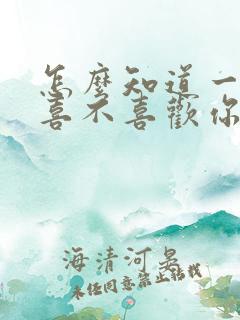 怎麼知道一
喜不喜歡你
海清河晏
未经同意禁止转载